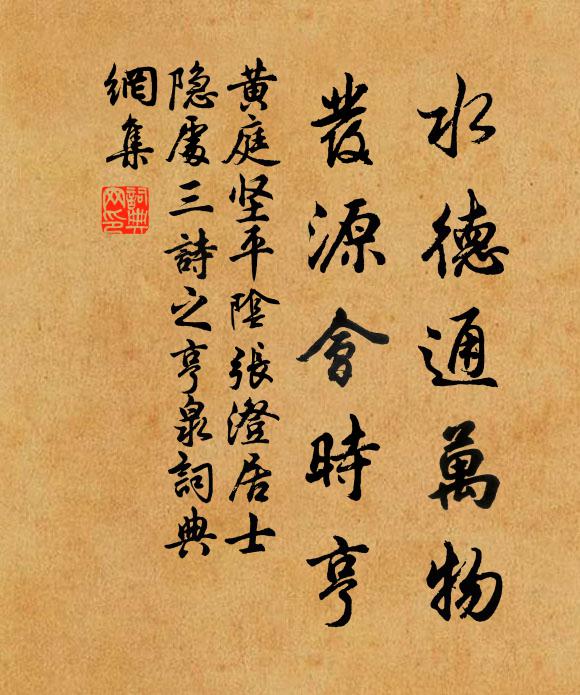 水德通萬物
發源會時亨
黃庭坚平陰張澄居士
隐處三詩之亨泉詞典
網集
詞典
网印